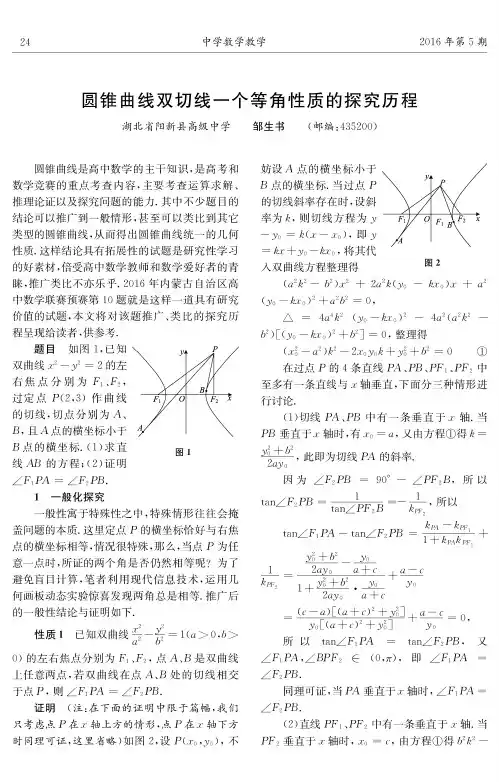 24
中学数学教学
2016年第5期
圆锥曲线双切线一个等角性质的探究历程
湖北省阳新县高级中学 邹生书 (邮编:435200)
圆锥曲线是高中数学的主干知识,是高考和
数学竞赛的重点考查内容,主要考查运算求解、
推理论证以及探究问题的能力.其中不少题目的
结论可以推广到一般情形,甚至可以类比到其它
类型的圆锥曲线,从而得出圆锥曲线统一的几何
性质.这样结论具有拓展性的试题是研究性学习
的好素材,倍受高中数学教师和数学爱好者的青
睐,推广类比不亦乐乎.2016年内蒙古自治区高
中数学联赛预赛第10题就是这样一道具有研究
价值的试题,本文将对该题推广、类比的探究历
程呈现给读者,供参考.
题目 如图1,已知
双曲线x²-y²=2的左
右焦点分别为F₁、F₂,
过定点P(2,3)作曲线
的切线,切点分别为A、
B,且A点的横坐标小于
B点的横坐标.(1)求直
线AB的方程;(2)证明
∠F₁PA=∠F₂PB.
y
P
B
F₁
O
F₂
x
A
图1
1 一般化探究
一般性寓于特殊性之中,特殊情形往往会掩
盖问题的本质.这里定点P的横坐标恰好与右焦
点的横坐标相等,情况很特殊,那么,当点P为任
意一点时,所证的两个角是否仍然相等呢?为了
避免盲目计算,笔者利用现代信息技术,运用几
何画板动态实验惊喜发现两角总是相等.推广后
的一般性结论与证明如下.
性质1 已知双曲线x²/a²-y²/b²=1(a>0,b>
0)的左右焦点分别为F₁、F₂,点A、B是双曲线
上任意两点,若双曲线在点A、B处的切线相交
于点P,则∠F₁PA=∠F₂PB.
证明 (注:在下面的证明中限于篇幅,我们
只考虑点P在x轴上方的情形,点P在x轴下方
时同理可证,这里省略)如图2,设P(x₀,y₀),不
妨设A点的横坐标小于
B点的横坐标.当过点P
的切线斜率存在时,设斜
率为k,则切线方程为y
-y₀=k(x-x₀),即y
=kx+y₀-kx₀,将其代
入双曲线方程整理得
y
P
F₁
O
F₁
B
F₂
x
A
图2
(a²k²-b²)x²+2a²k(y₀-kx₀)x+a²
(y₀-kx₀)²+a²b²=0,
△=4a⁴k²(y₀-kx₀)²-4a²(a²k²-
b²)[(y₀-kx₀)²+b²]=0,整理得
(x₀²-a²)k²-2x₀y₀k+y₀²+b²=0 ①
在过点P的4条直线PA、PB、PF₁、PF₂中
至多有一条直线与x轴垂直,下面分三种情形进
行讨论.
(1)切线PA、PB中有一条垂直于x轴.当
PB垂直于x轴时,有x₀=a,又由方程①得k=
(y₀²+b²)/(2ay₀),此即为切线PA的斜率.
因为∠F₂PB=90°-∠PF₂B,所以
tan∠F₂PB=1/tan∠PF₂B=-1/k_PF₂,所以
tan∠F₁PA-tan∠F₂PB=(k_PA-k_PF₁)/(1+k_PA k_PF₁)+
1/k_PF₂=((y₀²+b²)/(2ay₀)-y₀/(a+c))/(1+(y₀²+b²)/(2ay₀)·y₀/(a+c))+(a-c)/y₀
=(c-a)[(a+c)²+y₀²]/(y₀[(a+c)²+y₀²])+(a-c)/y₀=0,
所以tan∠F₁PA=tan∠F₂PB,又
∠F₁PA,∠BPF₂∈(0,π),即∠F₁PA=
∠F₂PB.
同理可证,当PA垂直于x轴时,∠F₁PA=
∠F₂PB.
(2)直线PF₁、PF₂中有一条垂直于x轴.当
PF₂垂直于x轴时,x₀=c,由方程①得b²k²-